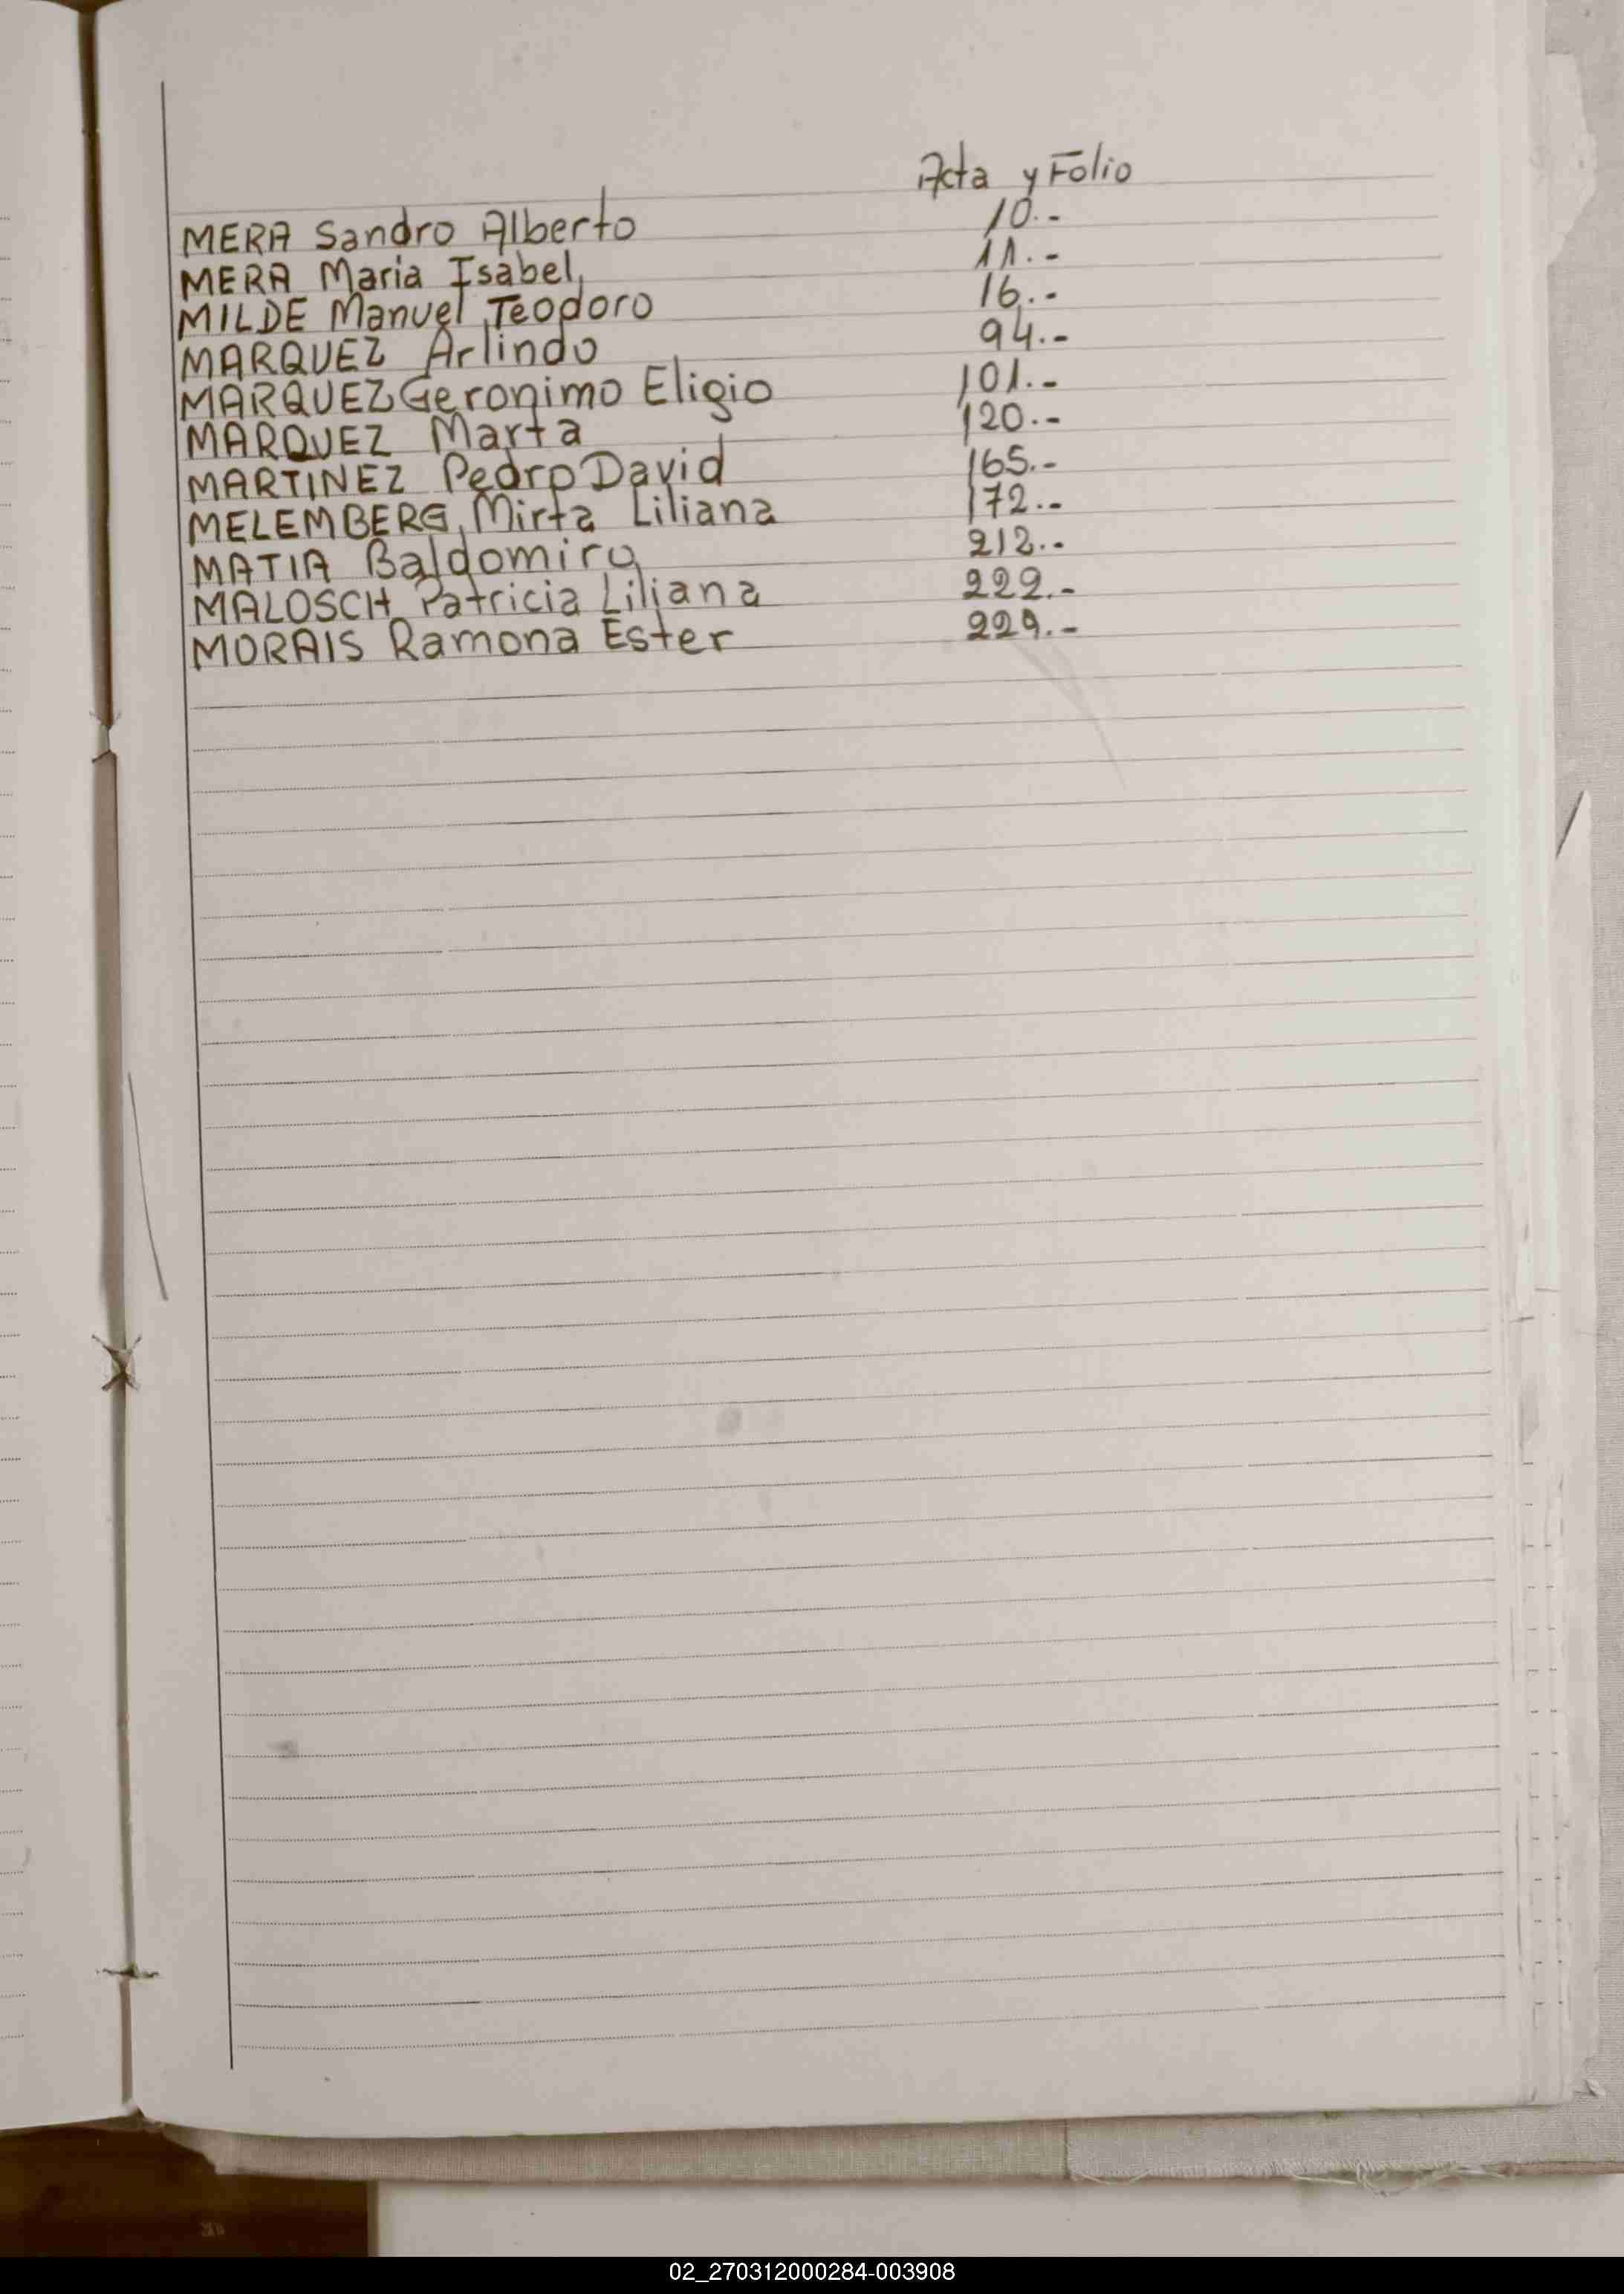 Acta y Folio
MERA Sandro Alberto 10.-
MERA Maria Isabel 11.-
MILDE Manuel Teodoro 16.-
MARQUEZ Arlindo 94.-
MARQUEZ Geronimo Eligio 101.-
MARQUEZ Marta 120.-
MARTINEZ Pedro David 165.-
MELEMBERG Mirta Liliana 172.-
MATIA Baldomiro 212.-
MALOSCH Patricia Liliana 222.-
MORAIS Ramona Ester 229.-
02_270312000284-003908